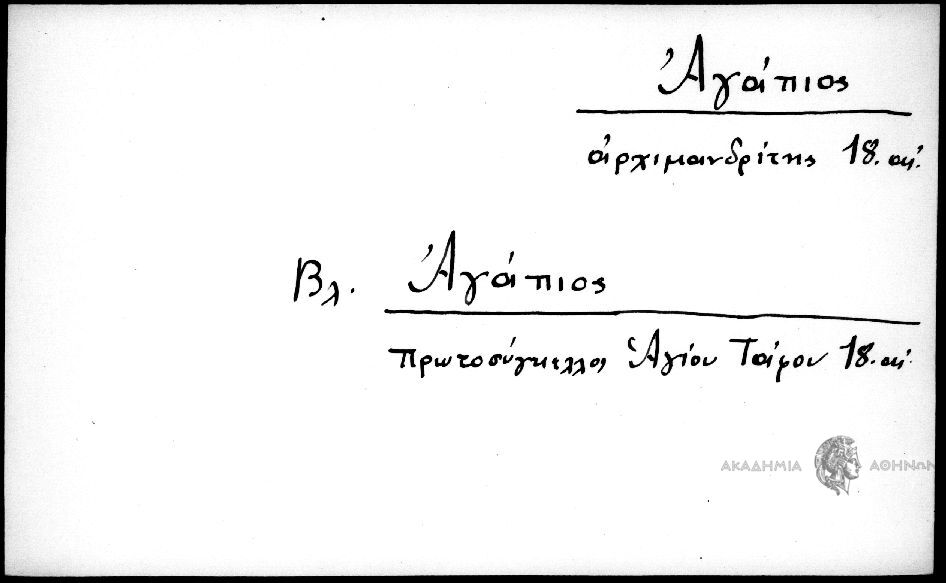 Ἀγάπιος
ἀρχιμανδρίτης 18. αἰ.
Βλ. Ἀγάπιος
Πρωτοσύγκελλος Ἁγίου Τάφου 18. αἰ.
ΑΚΑΔΗΜΙΑ ΑΘΗΝΩΝ